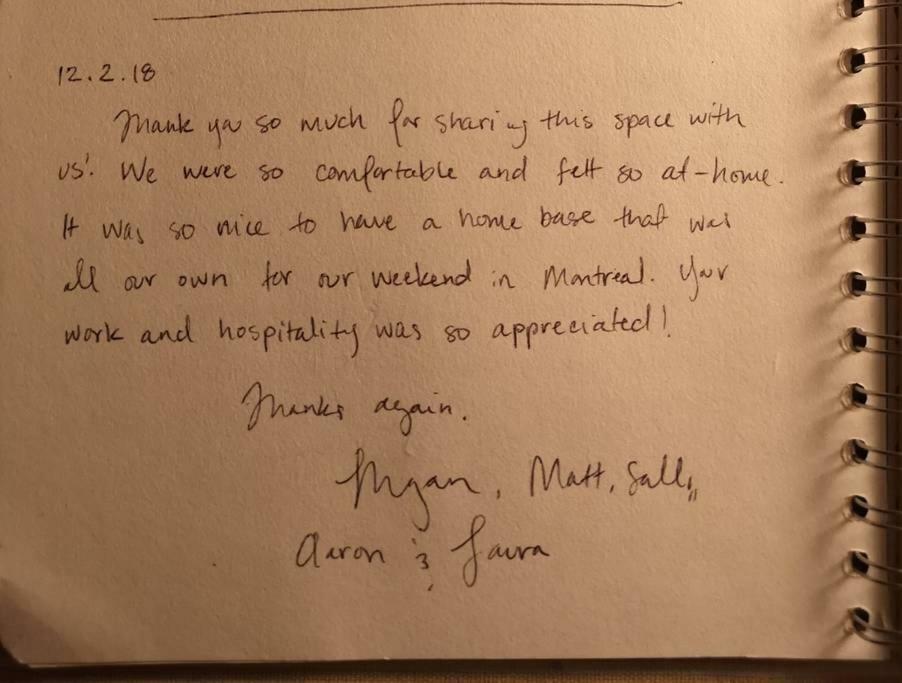 12.2.18
Thank you so much for sharing this space with
us! We were so comfortable and felt so at-home.
It was so nice to have a home base that was
all our own for our weekend in Montreal. Your
work and hospitality was so appreciated!
Thanks again.
Matt, Sally,
Aaron & Laura